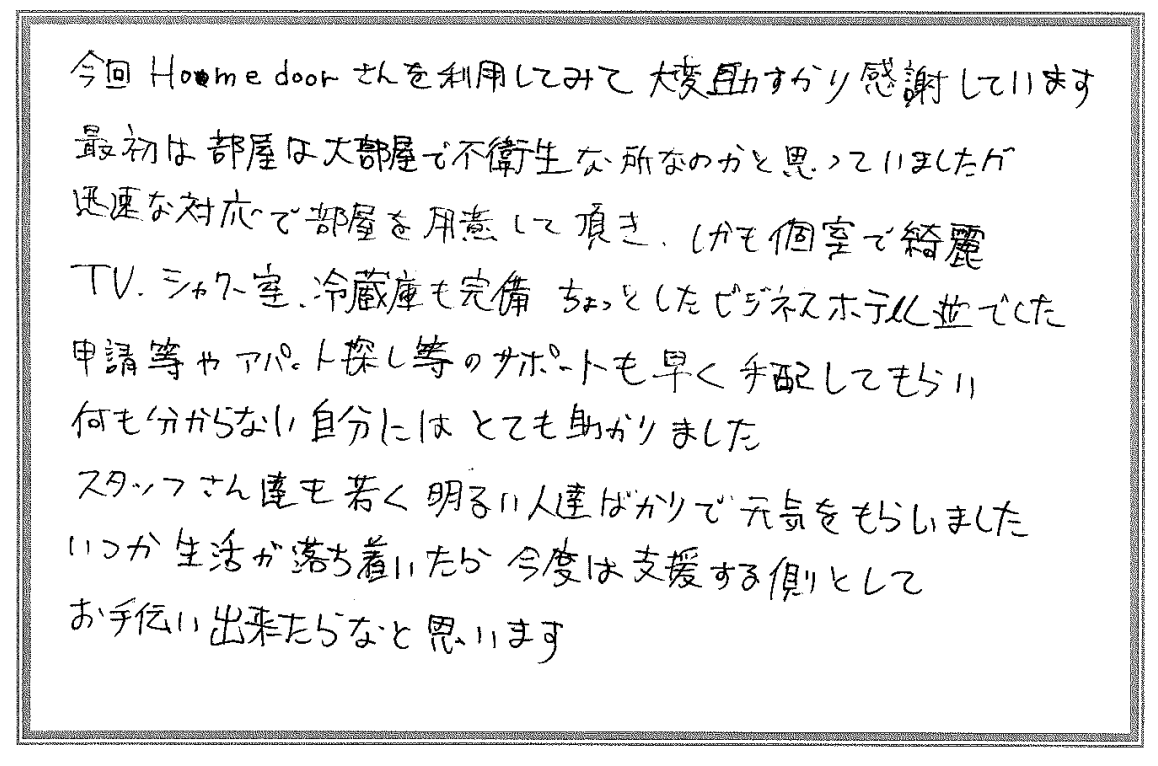 今回 Homedoorさんを利用してみて 大変助すかり感謝しています
最初は部屋は大部屋で不衛生な所なのかと思っていましたが
迅速な対応で部屋を用意して頂き、しかも個室で綺麗
TV、シャワー室、冷蔵庫も完備 ちょっとしたビジネスホテル並でした
申請等やアパート探し等のサポートも早く手配してもらい
何も分からない自分には とても助かりました
スタッフさん達も若く明るい人達ばかりで元気をもらいました
いつか生活が落ち着いたら今度は支援する側として
お手伝い出来たらなと思います